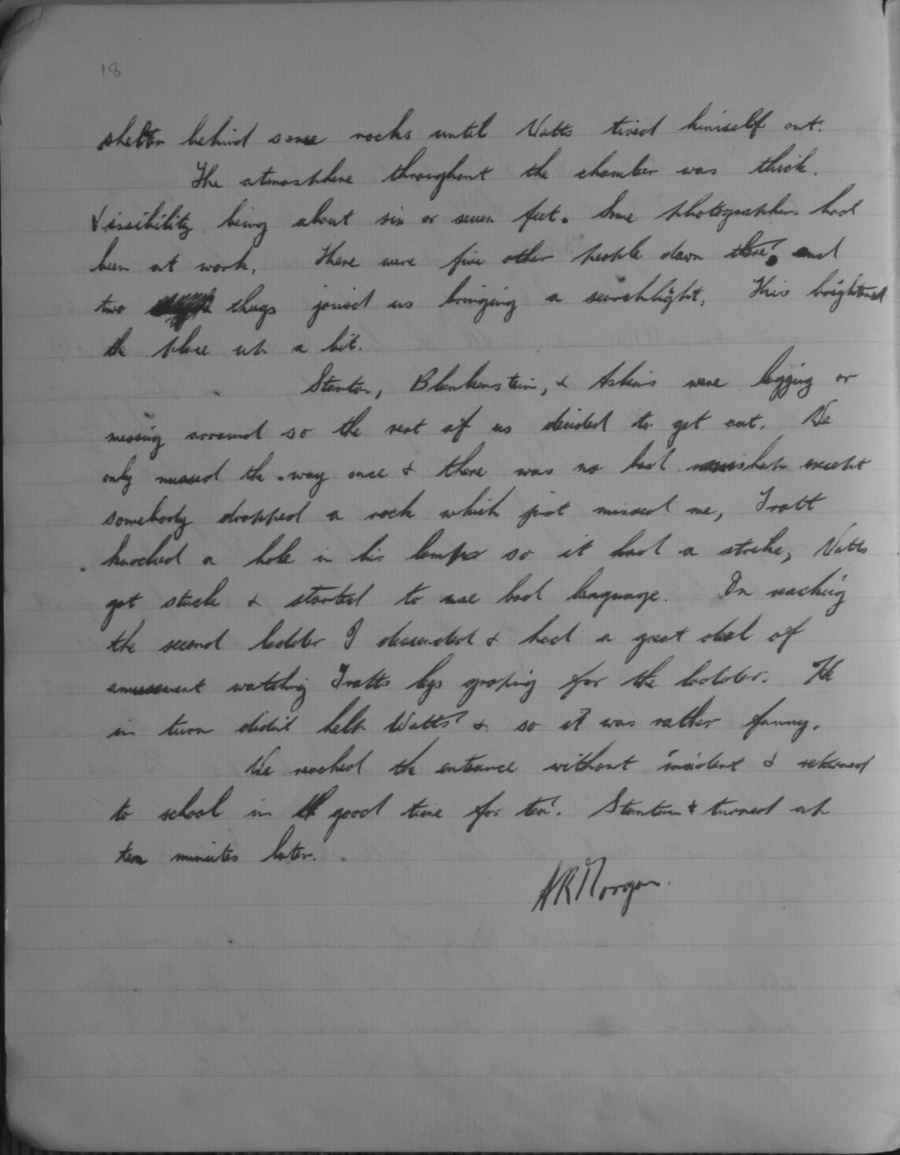 18
shelter behind some rocks until Watts tired himself out.
The atmosphere throughout the chamber was thick.
Visibility being about six or seven feet. Some photographers had
been at work. There were five other people down there, and
two thugs joined us bringing a searchlight. This brightened
the place up a bit.
Stanton, Blankenstein, & Askins were legging or
messing around so the rest of us decided to get out. We
only missed the way once & there was no bad mishap except
somebody dropped a rock which just missed me, Tratt
knocked a hole in his lamp so it had a stroke, Watts
got stuck & started to use bad language. On reaching
the second ladder I descended & had a great deal of
amusement watching Tratts legs groping for the ladder. He
in turn didn't help Watts & so it was rather funny.
We reached the entrance without incident & returned
to school in good time for tea. Stanton & turned up
ten minutes later.
H R Morgan.